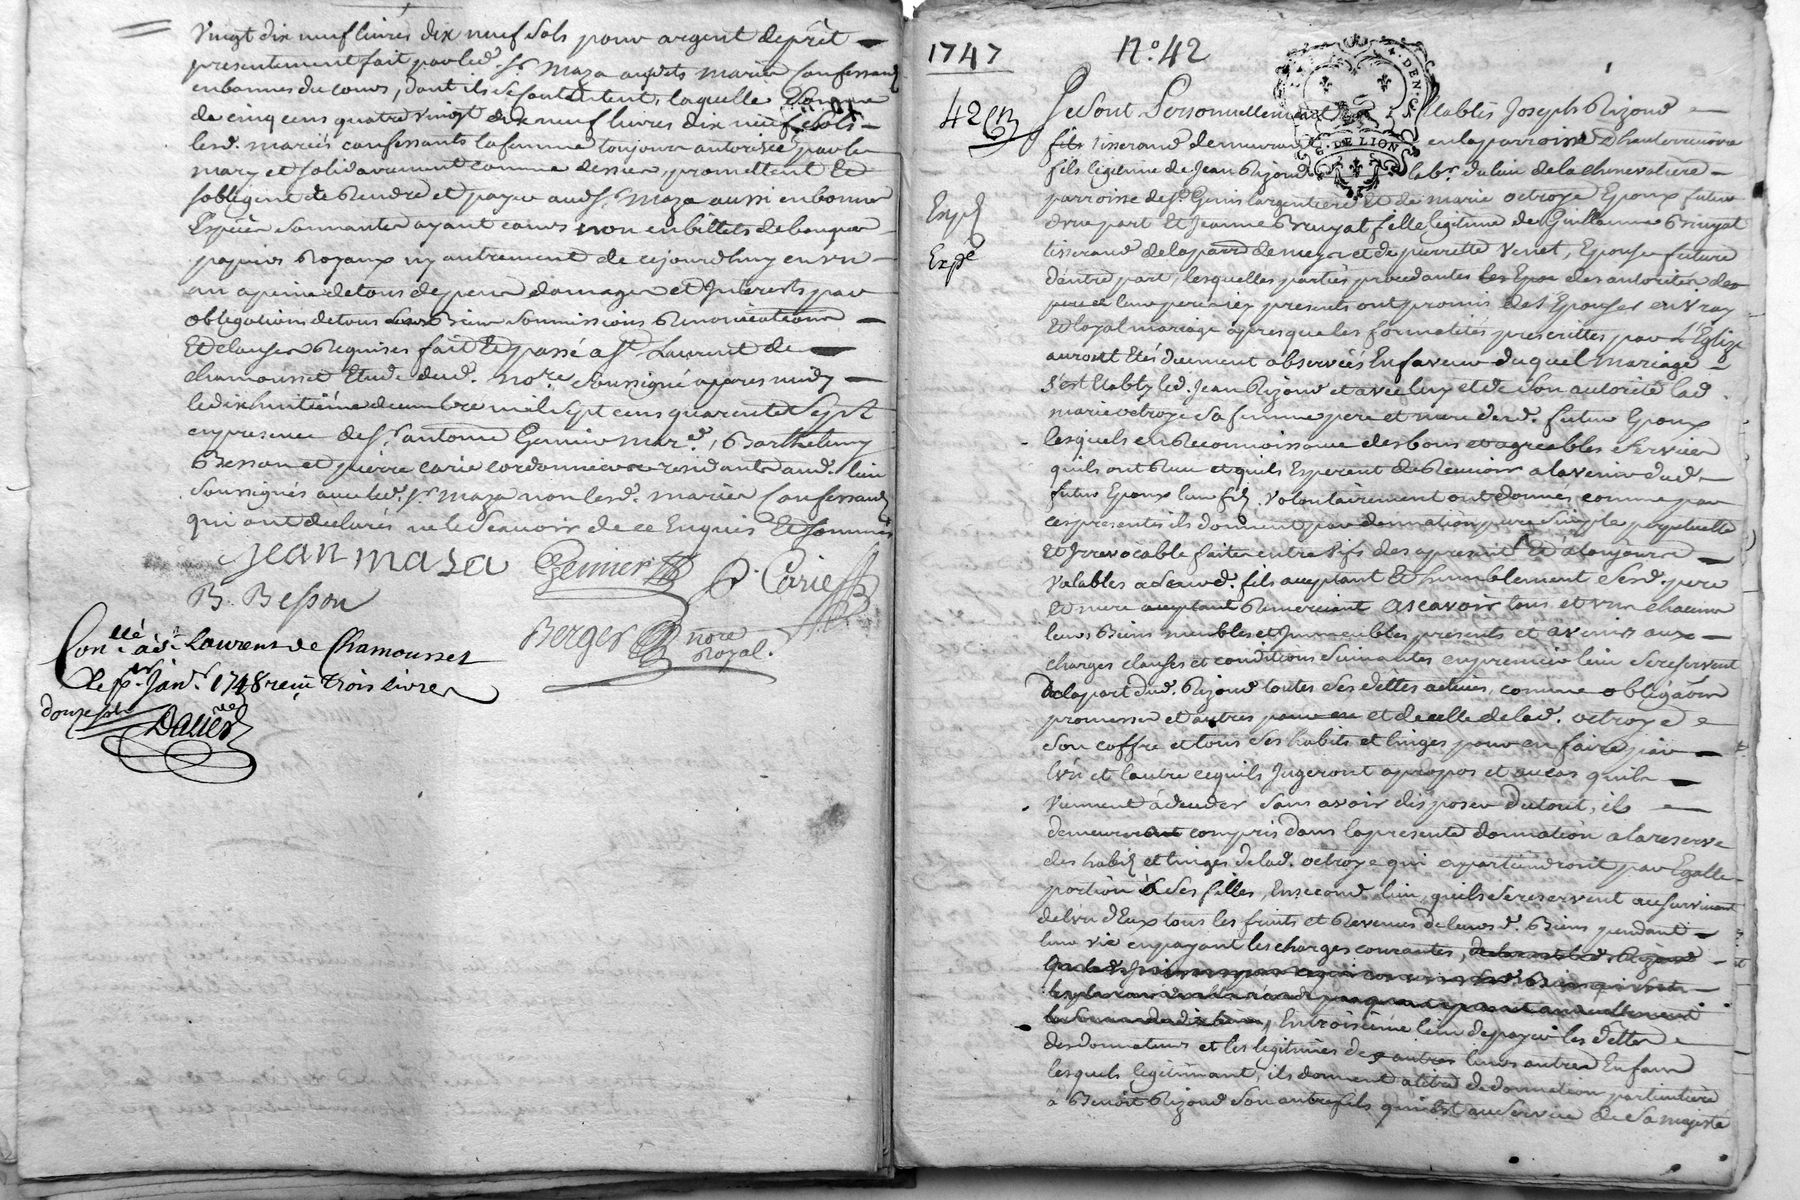 vingt dix neuf livres dix neuf sols pour argent de prêt
presentement fait par led. Sr. Maza auxdits mariés confessants
en bonnes du cours, dont ils se contentent, laquelle somme
de cinq cens quatre vingt dix neuf livres dix neuf sols
lesd. mariés confessants la femme toujours autorisée par le
mary et solidairement comme dessus, promettent et
sobligent de rendre et payer aud. Sr. Maza aussi en bonnes
Espéces sonnantes ayant cours non en billets de banque
papiers royaux ny autrement de cejourdhuy en un
an a peine de tous depens domages et Interests par
obligations de tous leurs Biens soumissions renonciations
Et clauses requises fait et passé a St. Laurent de
chamousset Etude dud. nore. soussigné apres midy
le dix huitiéme decembre mil sept cens quarente sept
en presence de Sr. antoine Genier mard., Barthelemy
Besson et pierre carie cordonniers residants aud. lieu
soussignés avec led. Sr Maza non lesd. mariés confessants
qui ont déclarés ne le scavoir de ce Enquis Et sommés
jean maza
Genier
P. Carie
B. Besson
Berger nore Royal.
Conllé. à St. Laurens de Chamousset
le pr. Janr. 1748 reçu trois livres
douze sols
Dalier
1747
N.o 42
42
Expé
Expé
DE LION
Se sont Personnellement Etablis Joseph Rizoud
fils tisserand demeurant en la parroisse D hauterivoire
fils legitime de Jean Rizoud labr. du lieu de la chenevatiere
parroisse de St. Genis largentiere et de marie octroye Epoux futur
d'une part Et Jeanne Bruyat fille legitime de Guillaume Bruyat
tisserand de la parr. de meys et de pierrette Venet, Epouse future
d'autre part, lesquelles parties procedantes des autorités de
leurs peres icy presents ont promis de s'Epouser en vray
Et loyal mariage apres que les formalités prescrittes par l'Eglise
auront Etés duement observées En faveur duquel mariage
s'est Etably led. Jean Rizoud et avec luy et de son autorité lad.
marie octroye sa femme pere et mere dud. futur Epoux
lesquels en reconnoissance des bons et agreables services
quils ont reçu et quils Esperent de recevoir a lavenir dud.
futur Epoux leur fils, volontairement ont donnés comme par
ces presentes ils donnent par donnation pure simple perpetuelle
Et Irrevocable faite entre vifs des apresent Et à toujours
valables aud. fils acceptant Et humblement sesd. pere
et mere remerciant ascavoir tous et un chacuns
leurs Biens meubles et Immeubles presents et avenirs aux
charges clauses et conditions suivantes en premier lieu se reservent
de la part dud. Rizoud toutes ses dettes actives, comme obligation
promesses et autres et de celle de lad. octroye
son coffre et tous ses habits et linges pour en faire par
lun et lautre ce quils Jugeront apropos et au cas quils
viennent à deceder sans avoir disposer du tout, ils
demeureront compris dans la presente donnation a la reserve
des habits et linges de lad. octroye qui appartiendront par Egalle
portion à ses filles, En second lieu, quils se reservent au survivant
de lun d'Eux tous les fruits et revenus de leursd. Biens pendant
leur vie en payant les charges courantes,
En troisieme lieu de payer les dettes
des donnateurs et les legitimes de leurs autres Enfans
lesquels legitimant, ils donnent a titre de donnation particuliere
à Benoit Rizoud son autre fils qui est au service de sa majesté